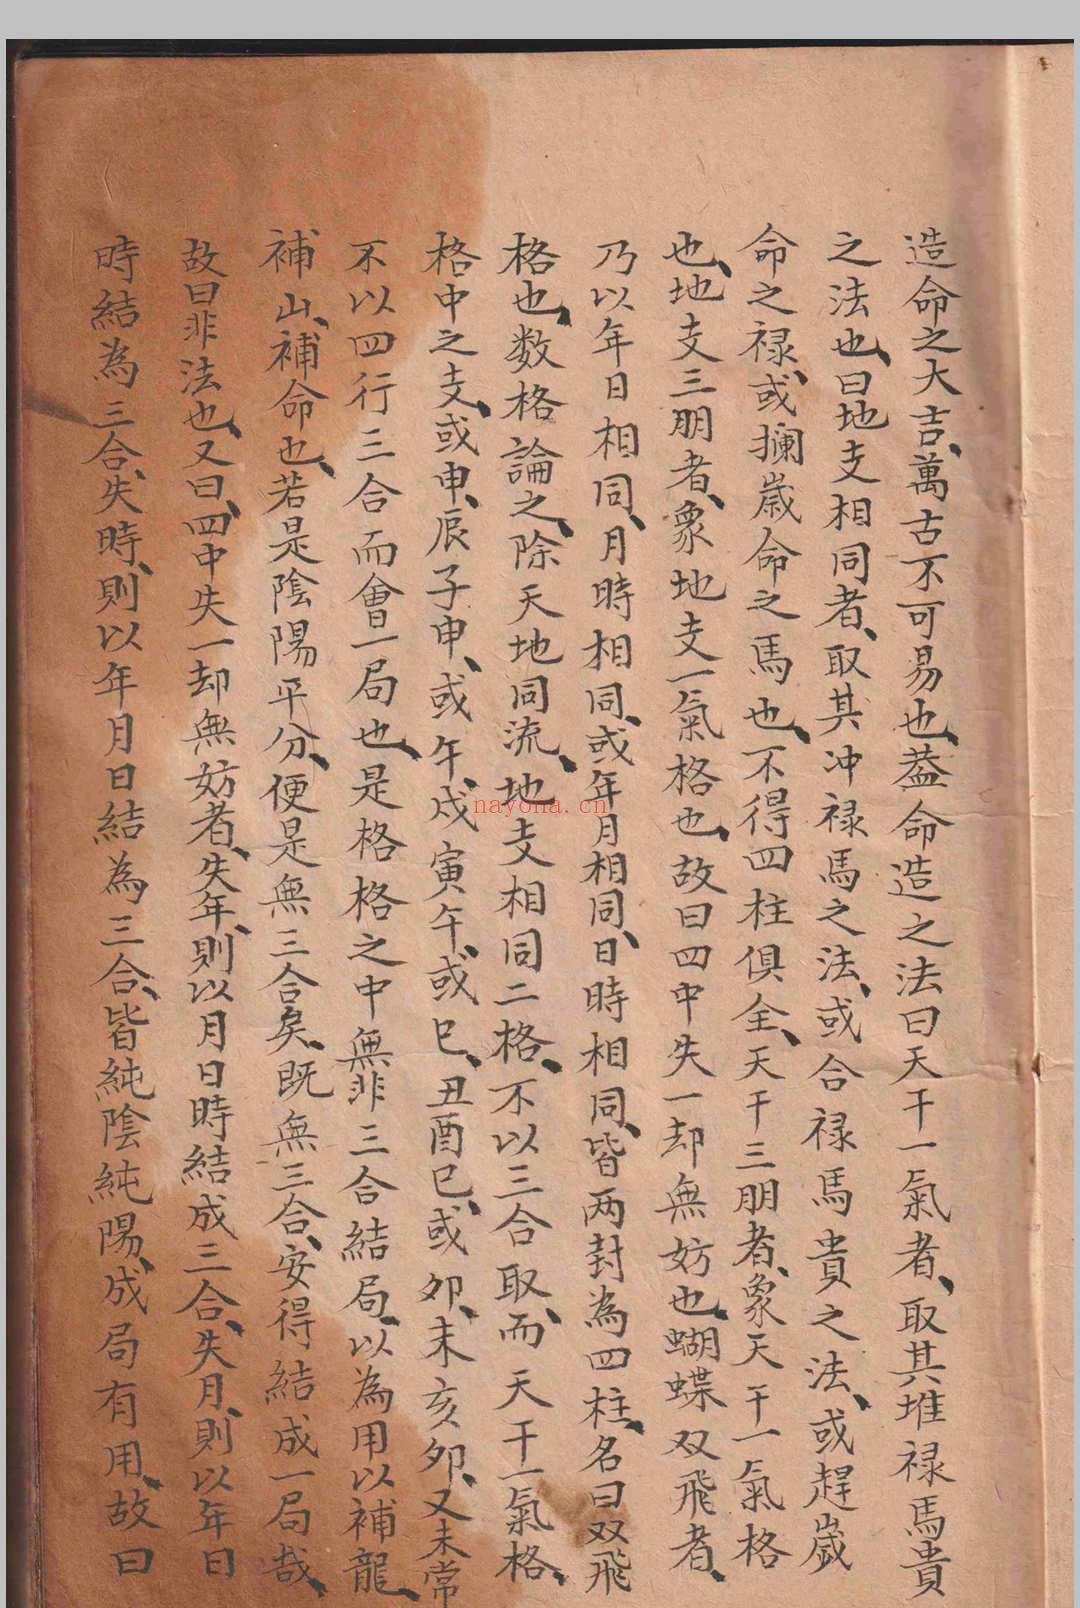 造命之大吉、萬古不可易也、蓋命造之法曰天干一氣者、取其堆禄馬貴
之法也、曰地支相同者、取其冲禄馬之法、或合禄馬貴之法、或趕歲
命之禄、或攔歲命之馬也、不得四柱俱全、天干三朋者、象天干一氣格
也、地支三朋者、象地支一氣格也、故曰四中失一却無妨也、蝴蝶双飛者、
乃以年日相同、月時相同、或年月相同、日時相同、皆两封為四柱、名曰双飛
格也、数格論之、除天地同流、地支相同二格、不以三合取、而天干一氣格、
格中之支、或申、辰子申、或午、戌寅午、或巳、丑酉巳、或卯、未亥卯、又未常
不以四行三合而會一局也、是格格之中無非三合結局、以為用以補龍、
補山、補命也、若是陰陽平分、便是無三合矣、既無三合、安得結成一局哉、
故曰非法也、又曰、四中失一却無妨者、失年、則以月日時結成三合、失月、則以年日
時結為三合、失時、則以年月日結為三合、皆純陰純陽、成局有用、故曰
nayona.cn